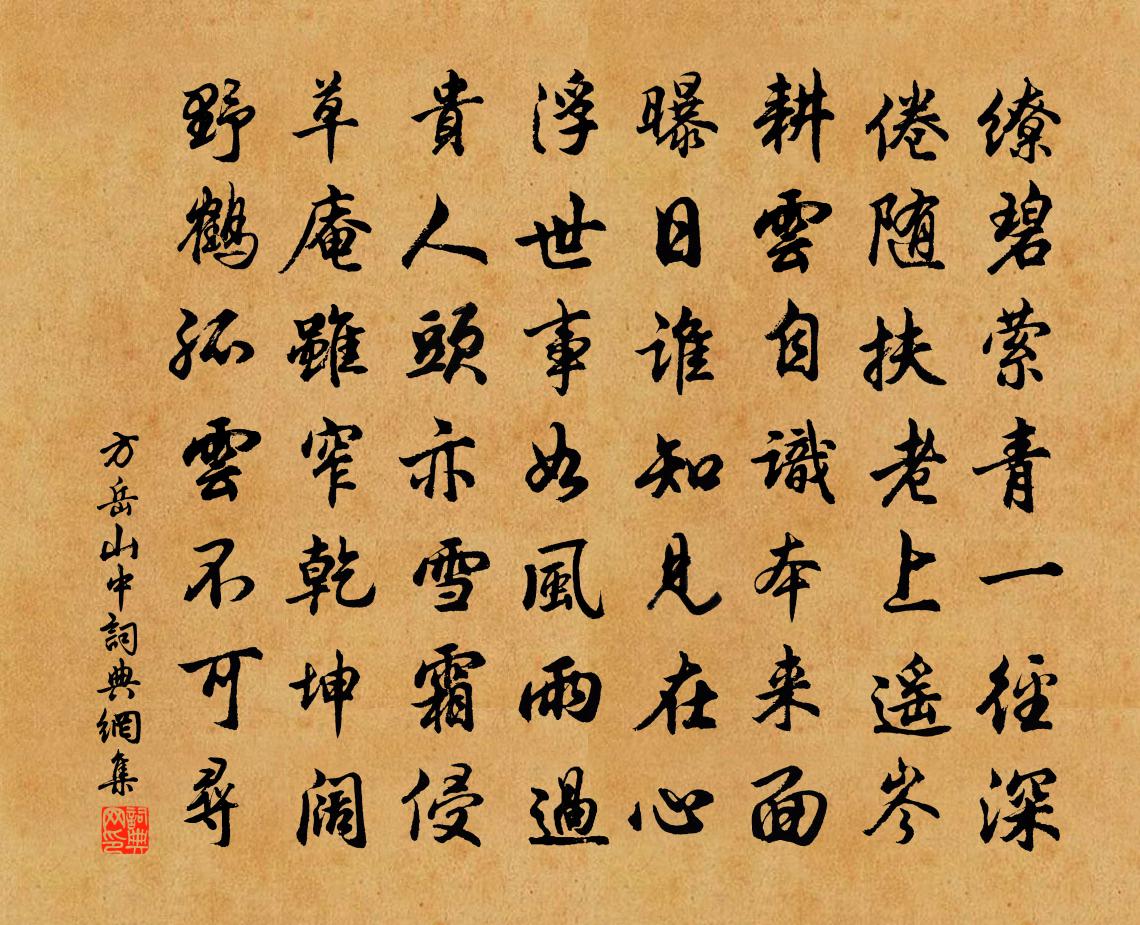 繚碧萦青一徑深
倦随扶老上遥岑
耕雲自識本来面
曝日誰知見在心
浮世事如風雨過
貴人頭亦雪霜侵
草庵雖窄乾坤闊
野鶴孤雲不可尋
方岳山中詞典網集
詞典
网印